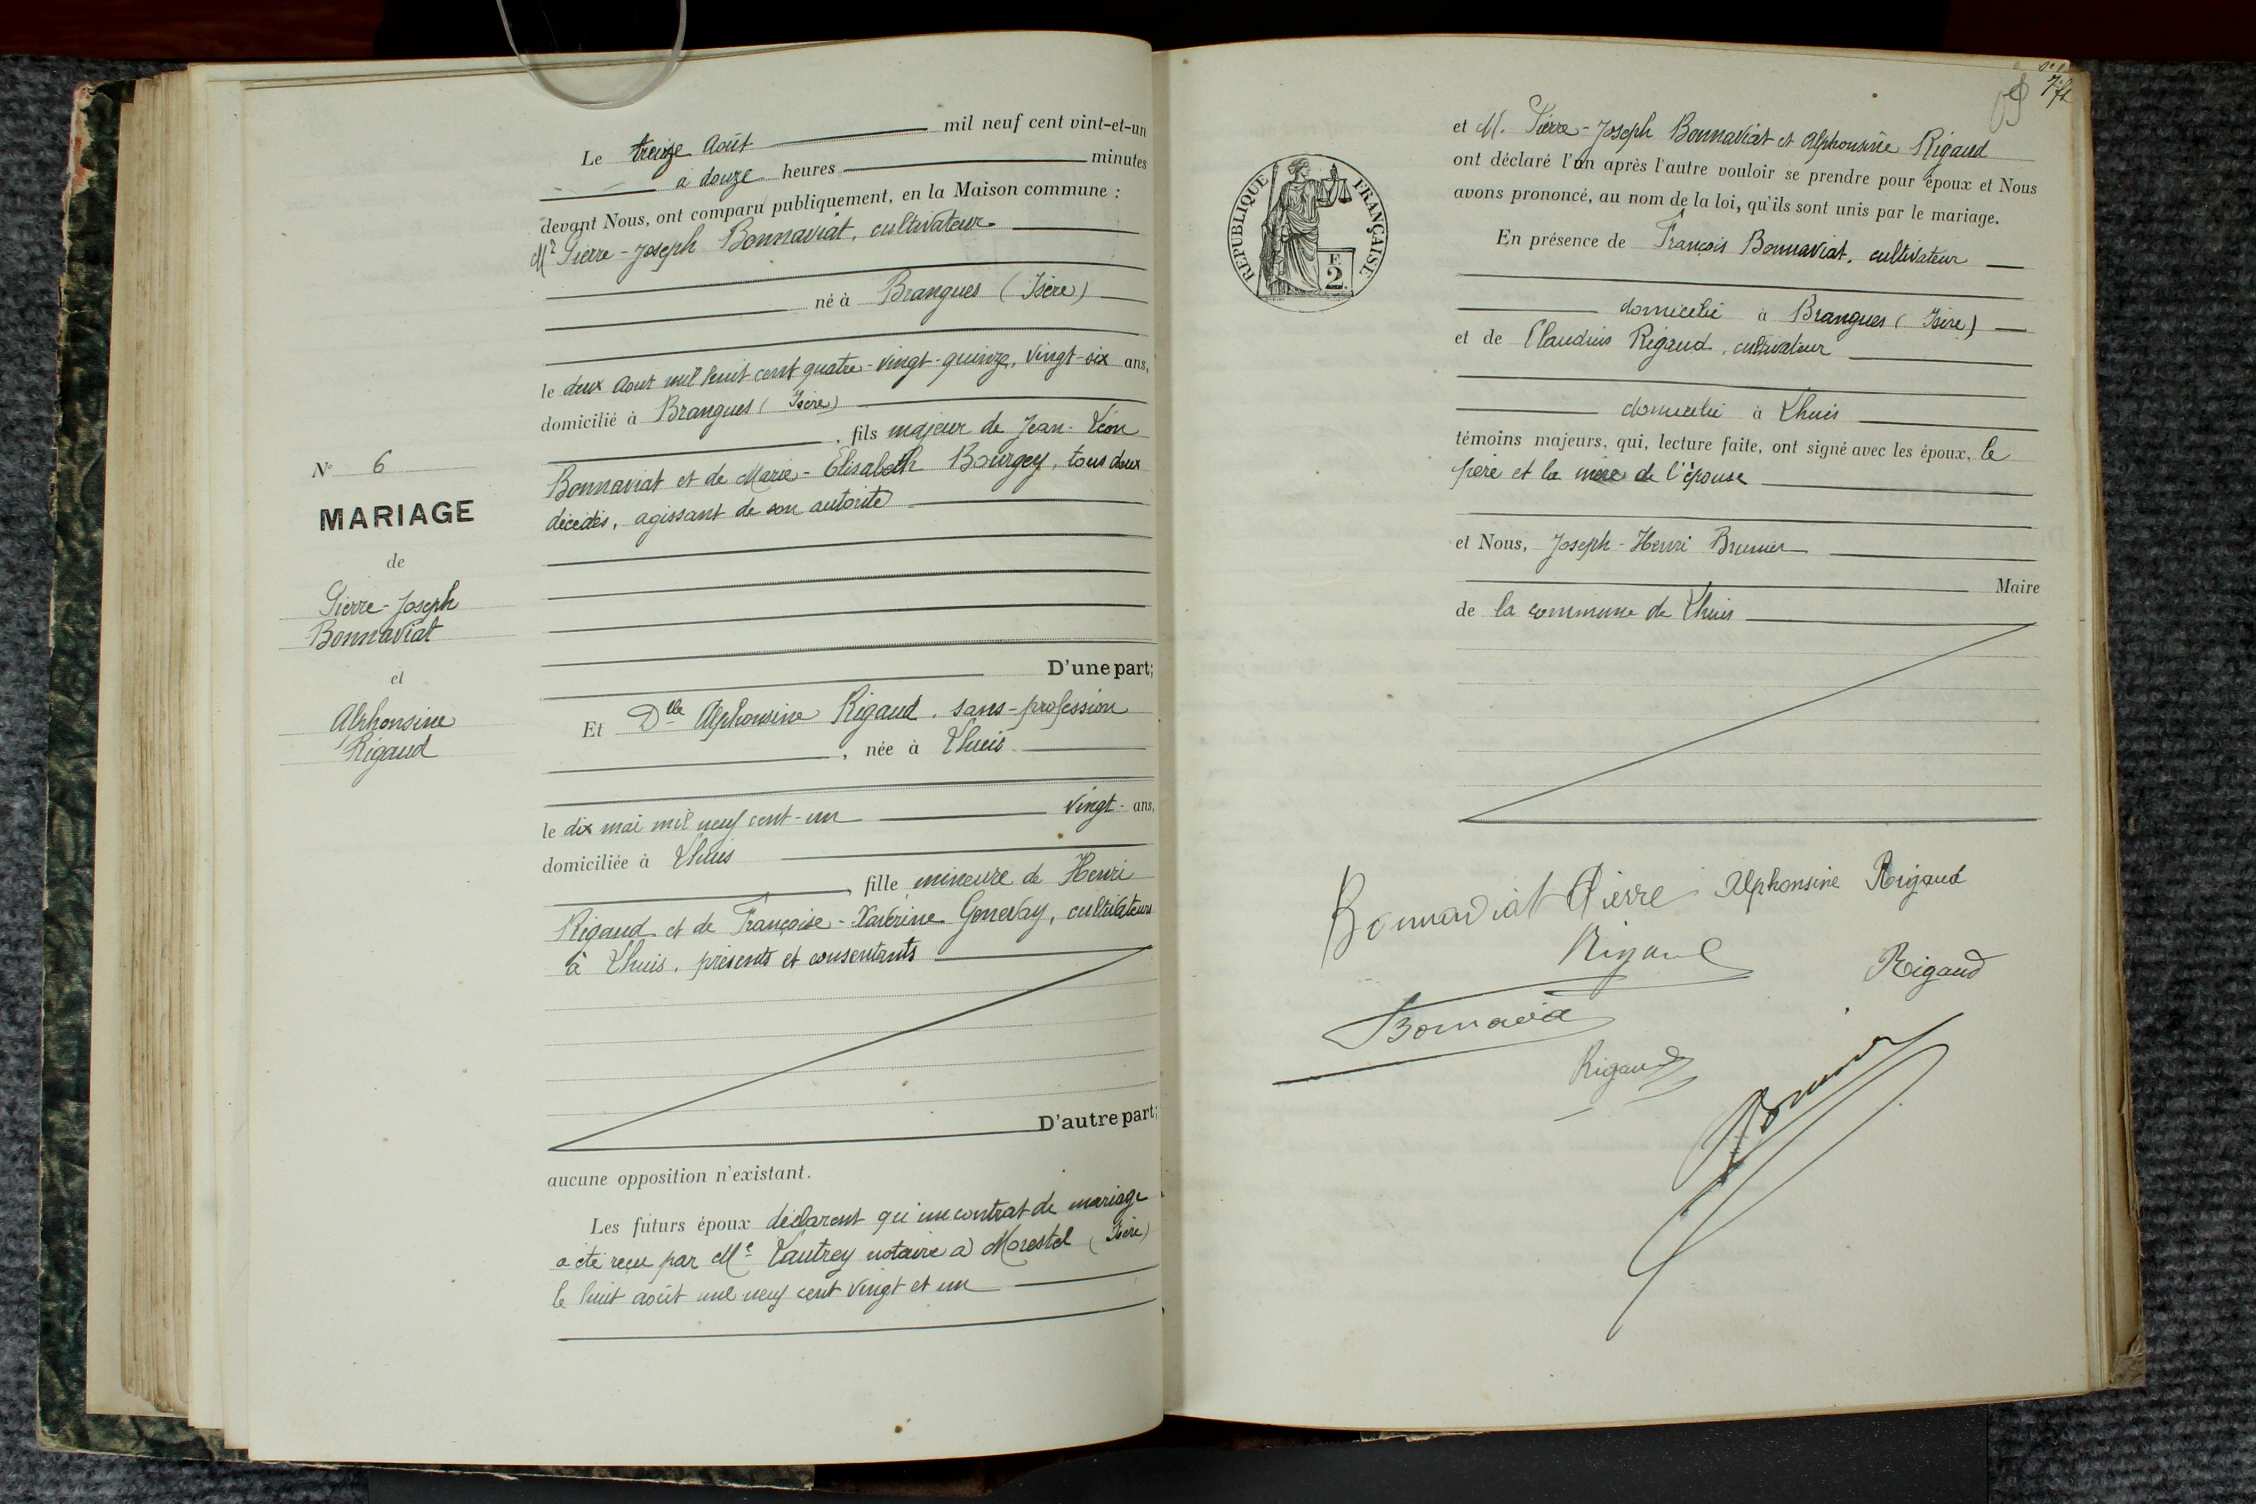 Le treize Août mil neuf cent vint-et-un
à douze heures minutes
devant Nous, ont comparu publiquement, en la Maison commune :
Mr Pierre-Joseph Bonnaviat, cultivateur
né à Brangues (Isère)
le deux Août mil huit cent quatre-vingt-quinze, vingt-six ans,
domicilié à Brangues (Isère)
, fils majeur de Jean-Léon
Bonnaviat et de Marie-Élisabeth Bourgey, tous deux
décédés, agissant de son autorité
D'une part;
N° 6
MARIAGE
de
Pierre-Joseph
Bonnaviat
et
Alphonsine
Rigaud
Et Dlle Alphonsine Rigaud, sans-profession
, née à Lhuis
le dix mai mil neuf cent-un vingt ans,
domiciliée à Lhuis
, fille mineure de Henri
Rigaud et de Françoise-Xavérine Genevay, cultivateurs
à Lhuis, présents et consentants
D'autre part;
aucune opposition n'existant.
Les futurs époux déclarent qu'un contrat de mariage
a été reçu par Me Lautrey notaire à Morestel (Isère)
le huit août mil neuf cent vingt et un
RÉPUBLIQUE FRANÇAISE
F.
2
et M. Pierre-Joseph Bonnaviat et Alphonsine Rigaud
ont déclaré l'un après l'autre vouloir se prendre pour époux et Nous
avons prononcé, au nom de la loi, qu'ils sont unis par le mariage.
En présence de François Bonnaviat, cultivateur
domicilié à Brangues (Isère)
et de Claudius Rigaud, cultivateur
domicilié à Lhuis
témoins majeurs, qui, lecture faite, ont signé avec les époux, le
père et la mère de l'épouse
et Nous, Joseph-Henri Brunier
Maire
de la commune de Lhuis
Bonnaviat Pierre Alphonsine Rigaud
Rigaud
Rigaud
Bonnavia
Rigaud
Brunier